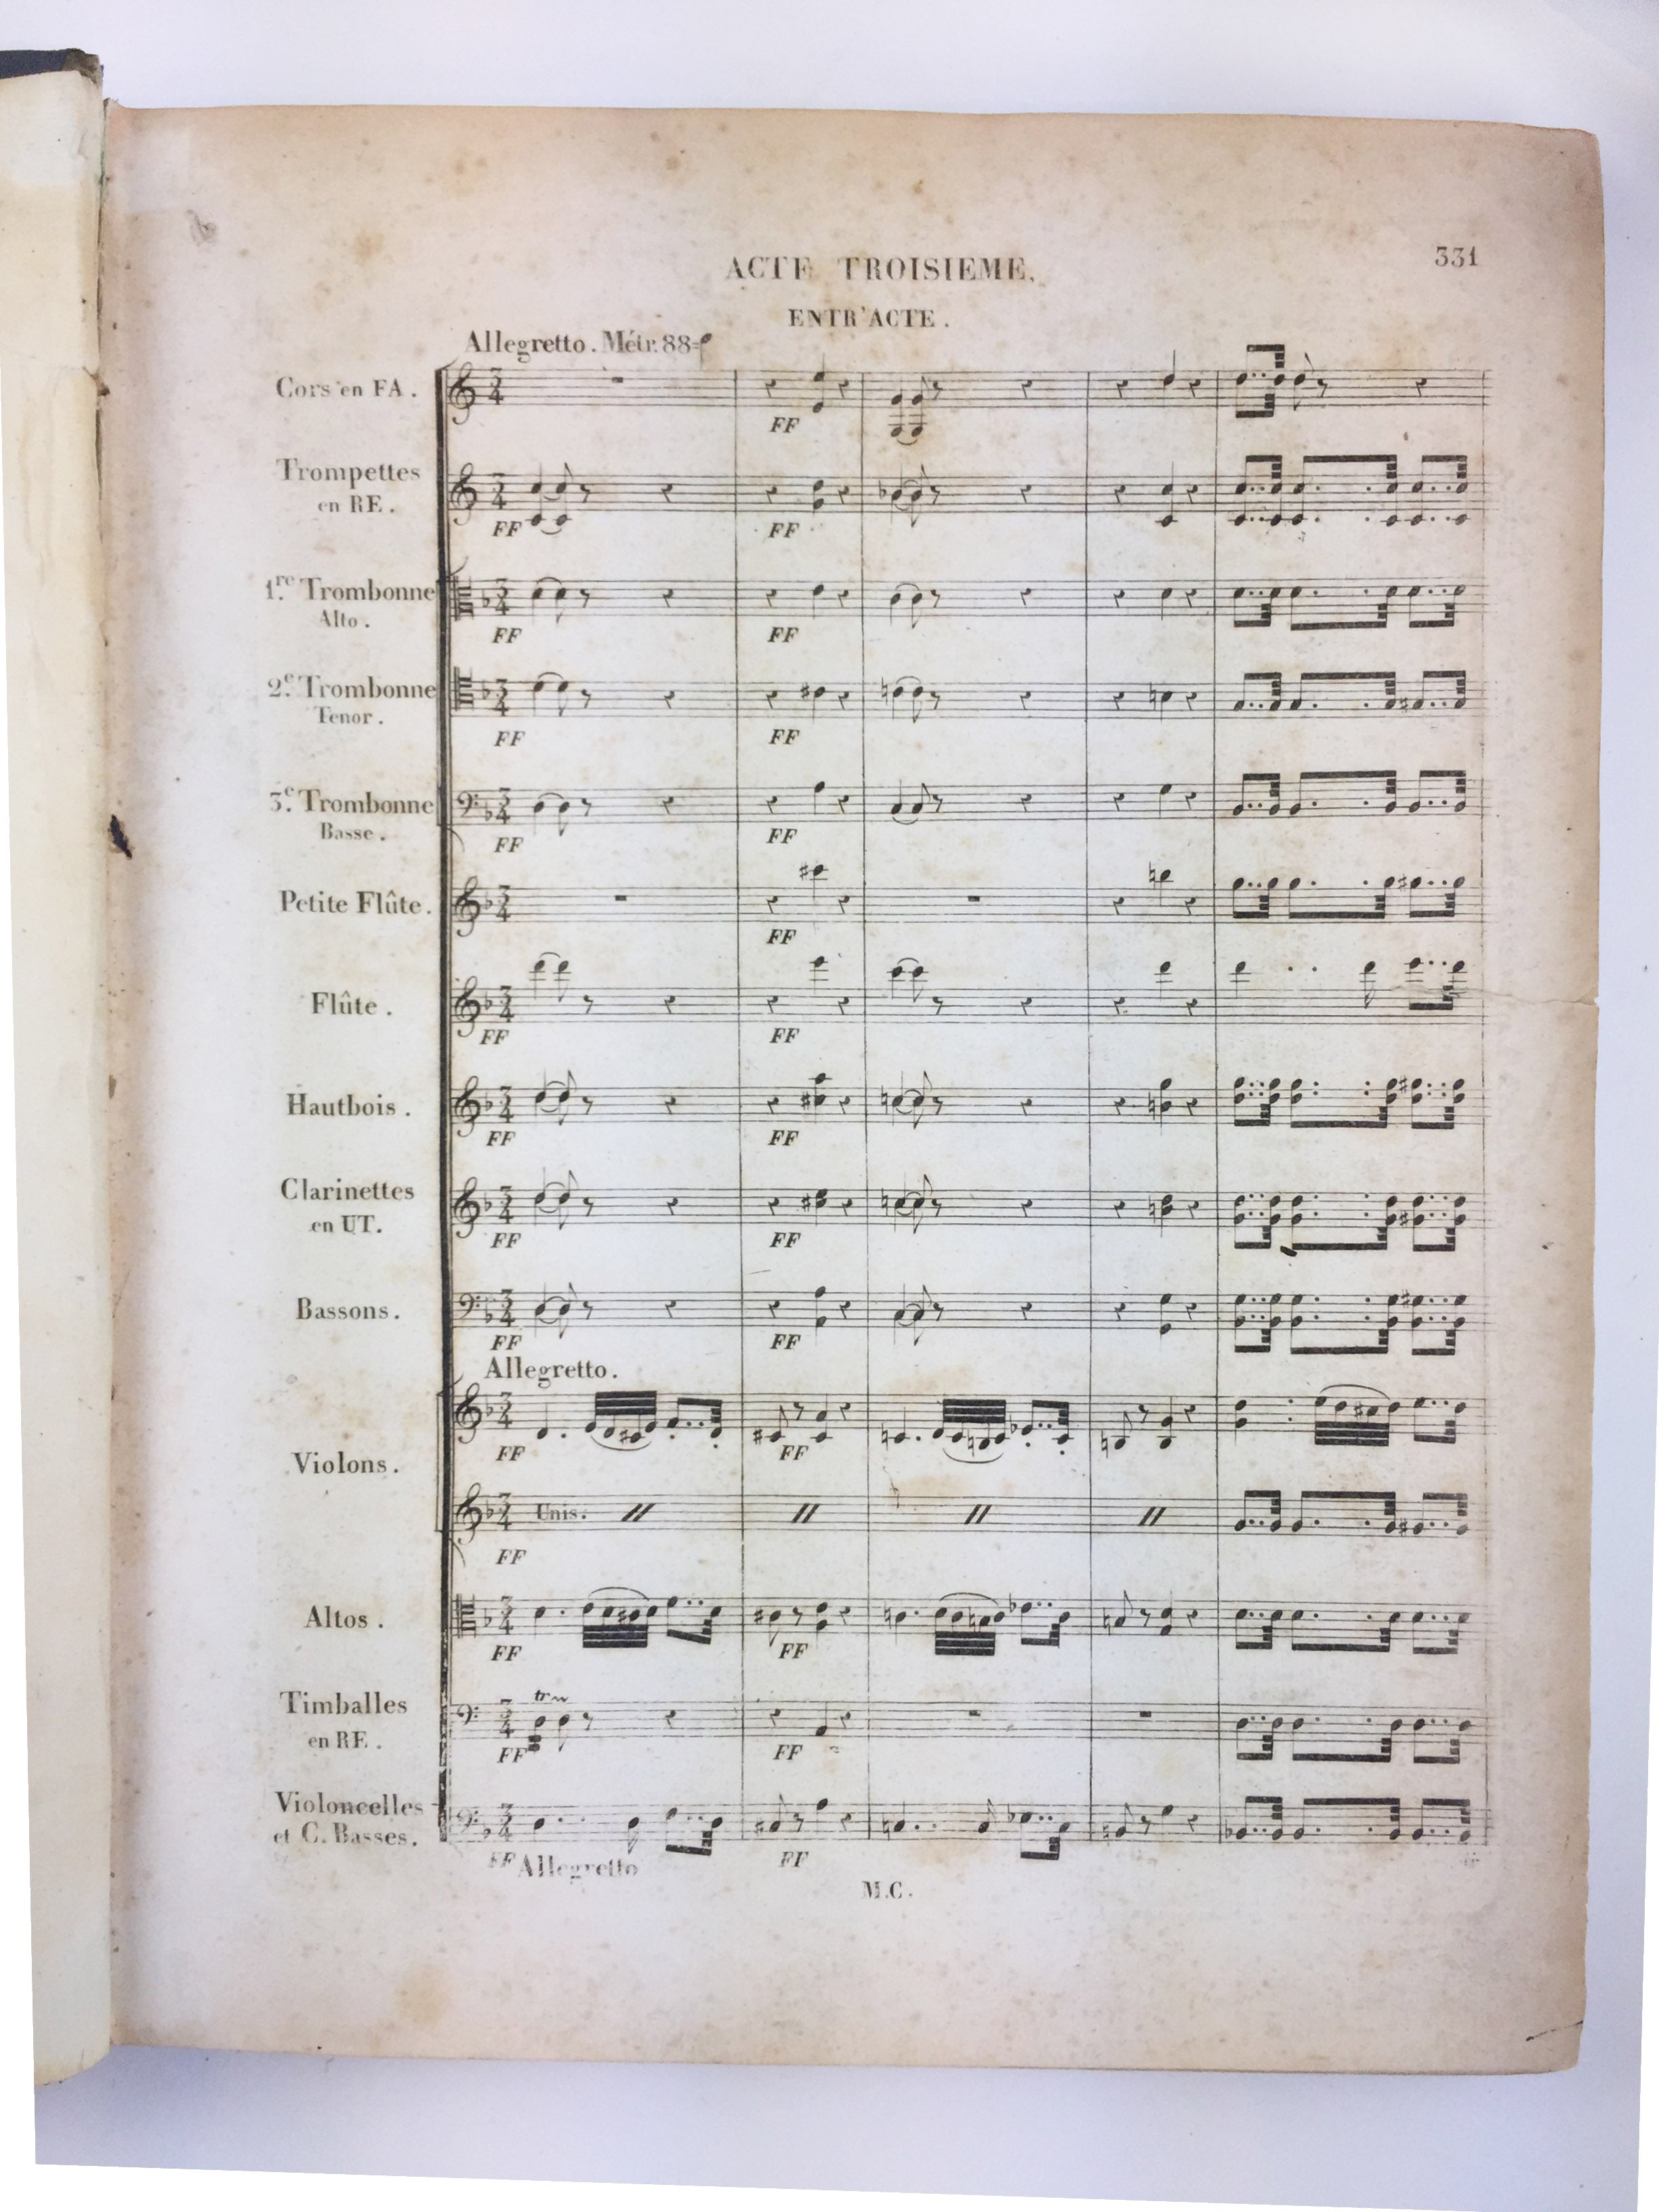 331
ACTE TROISIEME.
ENTR'ACTE.
Allegretto. Métr. 88=
Cors en FA.
FF
Trompettes
en RE.
FF FF
1re. Trombonne
Alto.
FF FF
2e. Trombonne
Tenor.
FF FF
3e. Trombonne
Basse.
FF FF
Petite Flûte.
FF
Flûte.
FF FF
Hautbois.
FF FF
Clarinettes
en UT.
FF FF
Bassons.
FF FF
Allegretto.
Violons.
FF FF
Unis.
FF
Altos.
FF FF
Timballes
en RE.
tr
FF FF
Violoncelles
et C. Basses.
FF Allegretto FF
M.C.